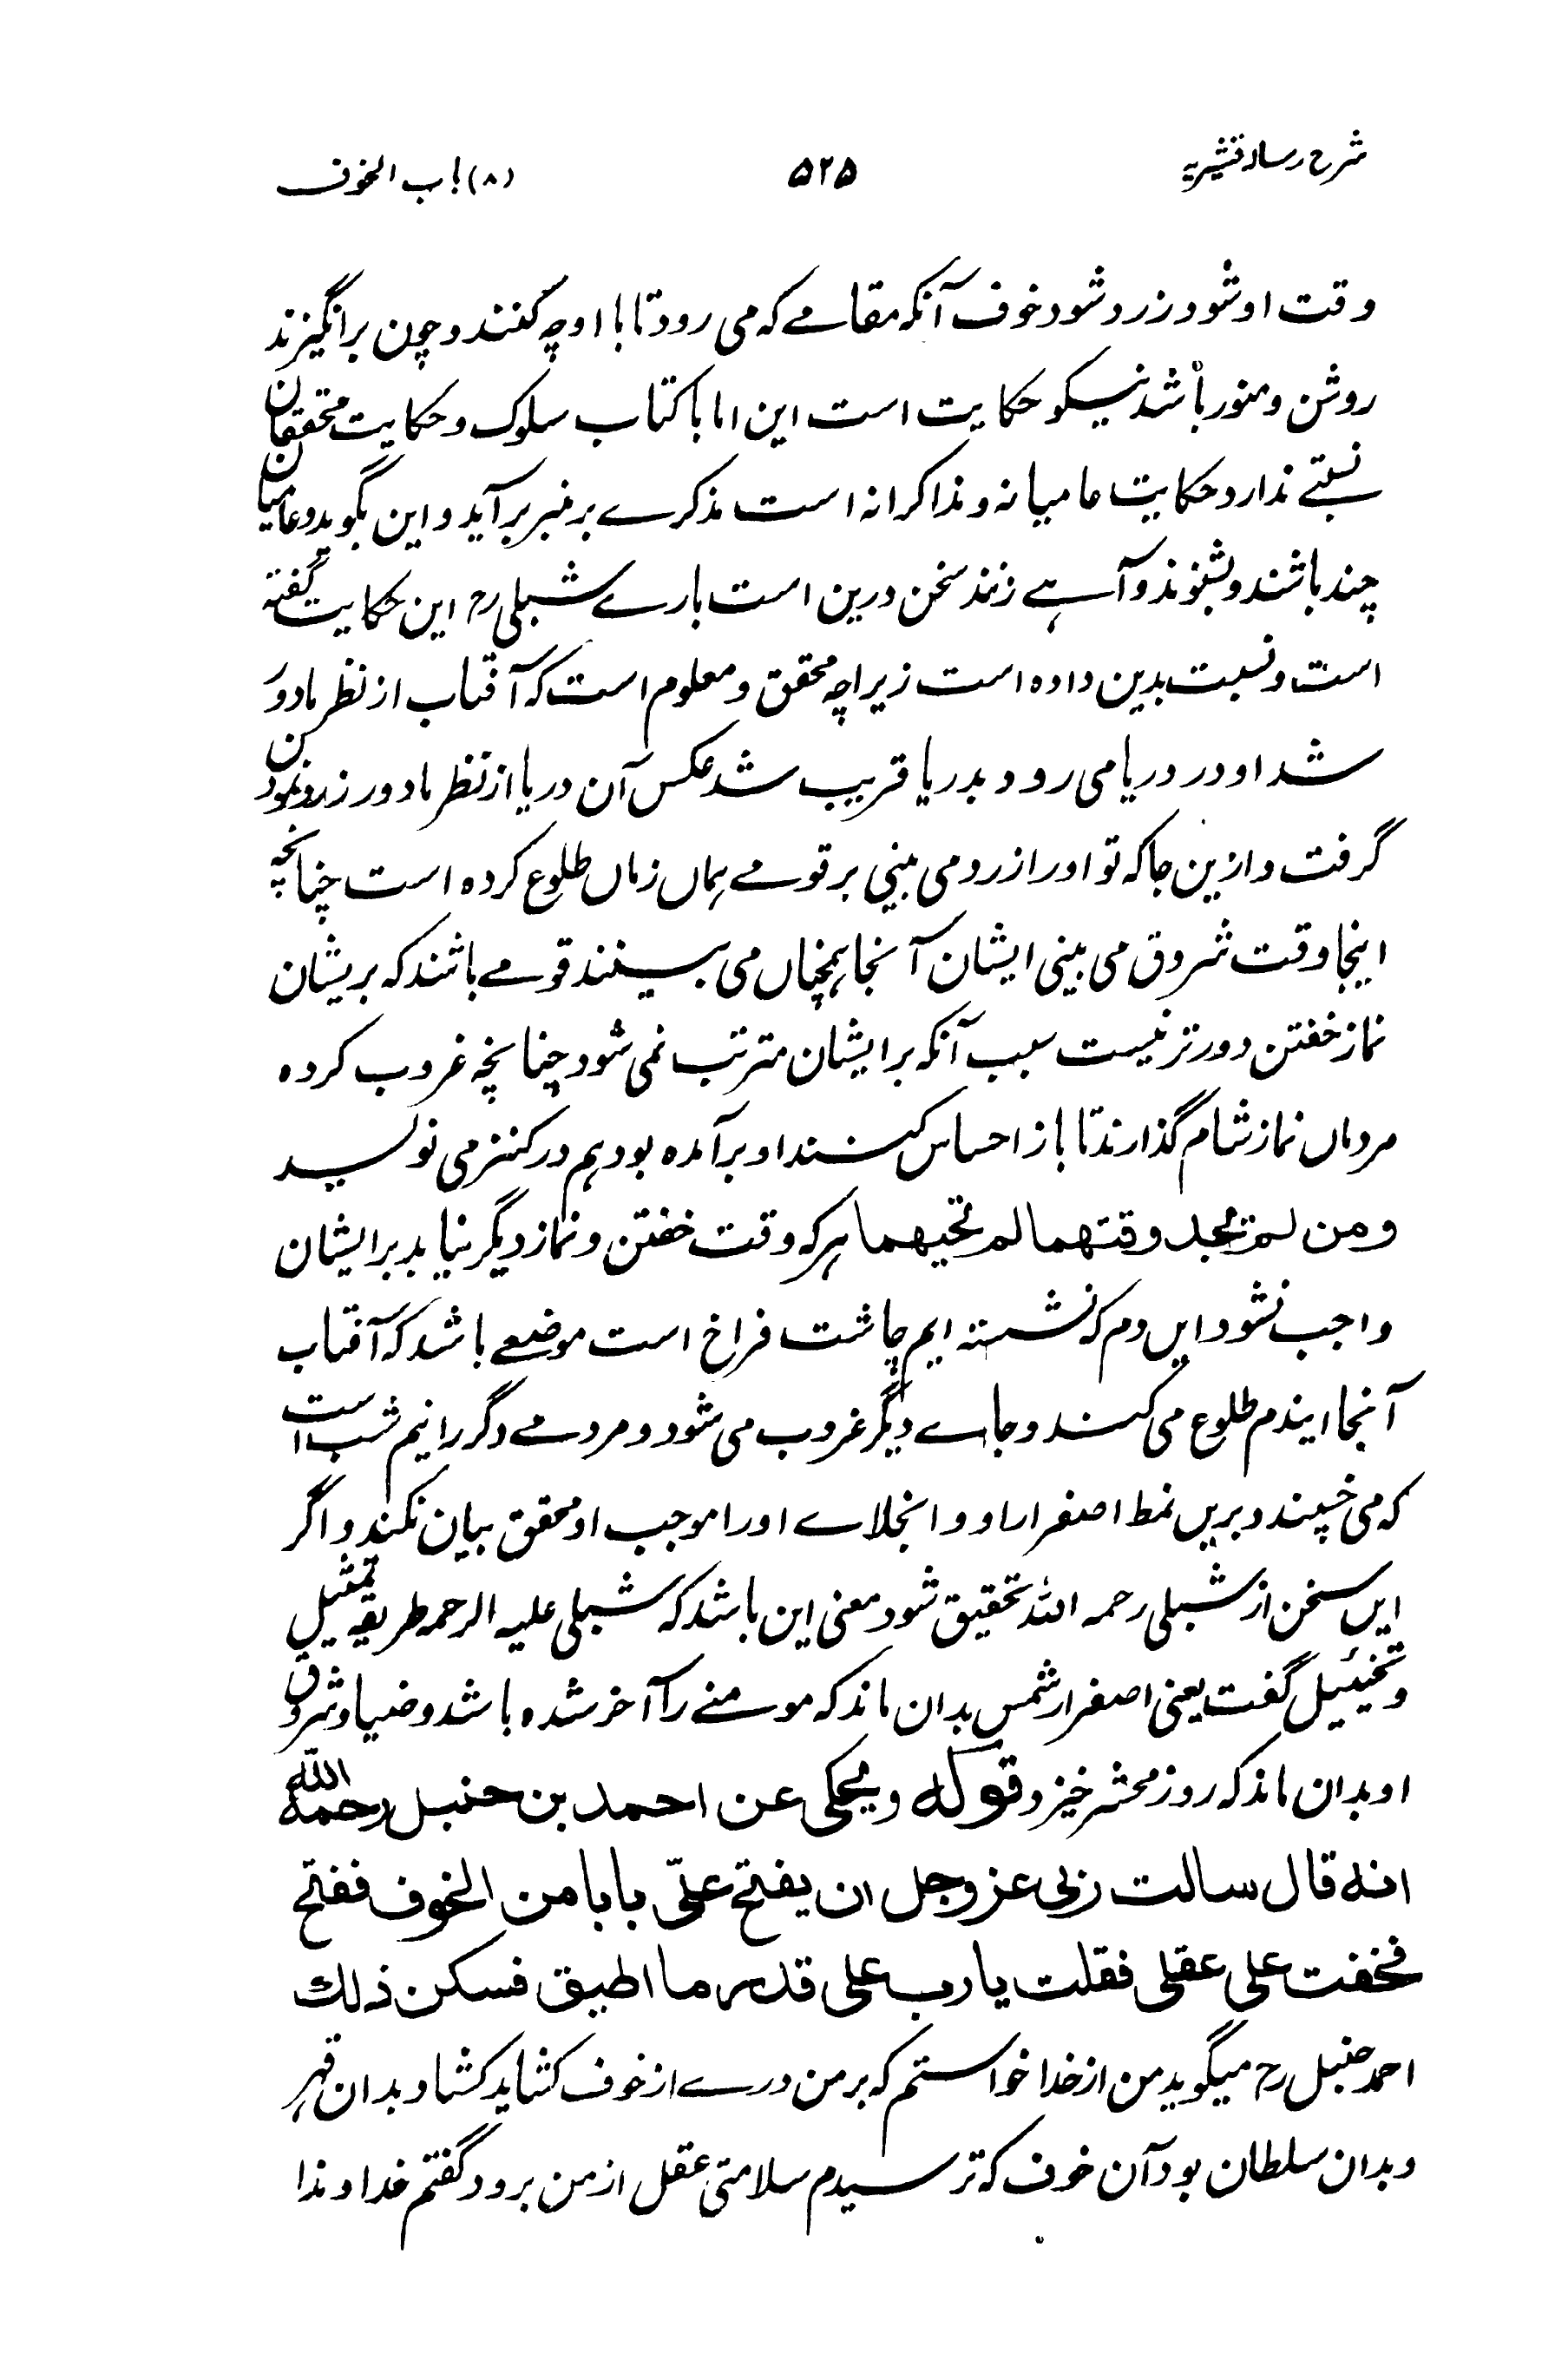 شرح رساله قشیریہ
۵۲۵
(۸) باب الخوف
وقت او شود زرد شود خوف آنکہ مقامے کہ می رود تا با او چہ کنند و چون برانگیزند
روشن و منور باشد نیکو حکایت است این اما با کتاب سلوک و حکایت محققان
نسبتے ندارد حکایت عامیانہ و مذاکرانہ است مذکرے بر منبر برآید و این بگوید و عامیان
چند باشند و بشنوند و آہے زنند سخن درین است بارے شبلی رح این حکایت گفتہ
است و نسبت بدین داده است زیراچہ محقق و معلوم است کہ آفتاب از نظر ما دور
شد او در دریا می رود بدریا قریب شد عکس آن دریا از نظر ما دور زرد نمودن
گرفت و ازین جا کہ تو اورا زرد می بینی بر قومے ہماں زماں طلوع کرده است چنانچہ
اینجا وقت شروق می بینی ایشان آنجا ہمچناں می بینند قومے باشند کہ بریشان
نماز خفتن دور تر نیست سبب آنکہ بر ایشان مترتب نمی شود چنانچہ غروب کرده
مردماں نماز شام گذارند تا باز احساس کنند او برآمده بود ہم در کنز می نویسد
ومن لم یجد وقتهما لم تحیهما ہر کہ وقت خفتن و نماز دیگر نیابد بر ایشان
واجب نشود ایں دم کہ نشستہ ایم چاشت فراخ است موضعے باشد کہ آفتاب
آنجا ایندم طلوع می کند و جاے دیگر غروب می شود و مردمے دگر را نیم شب است
کہ می خسپند و بریں نمط اصفرار او و انجلاے اورا موجب او محقق بیان نکند و اگر
ایں سخن از شبلی رحمہ اللہ تحقیق شود معنی این باشد کہ شبلی علیہ الرحمہ طریقہ تمثیل
و تخییل گفت یعنی اصفرار شمس بدان ماند کہ مومنے را آخر شده باشد و ضیا و شروق
او بدان ماند کہ روز محشر خیزد قولہ ویحکی عن احمد بن حنبل رحمہ اللہ
انه قال سالت ربی عز وجل ان یفتح علیّ بابا من الخوف ففتح
فخفت علی عقلی فقلت یا رب علی قدر ما اطیق فسکن ذلك
احمد حنبل رح میگوید من از خدا خواستم کہ بر من درے از خوف کشاید کشاد بدان قہر
و بدان سلطان بود آن خوف کہ ترسیدم سلامتی عقل از من برود گفتم خداوندا